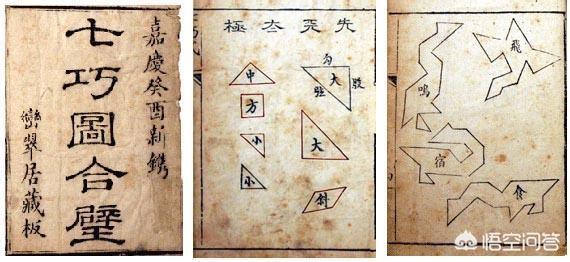 嘉慶癸酉新鐫
七巧圖合璧
巒翠居藏板
先天太極
勾
股
弦
大
大
斜
中
方
小
小
飛
鳴
宿
食
悟空问答